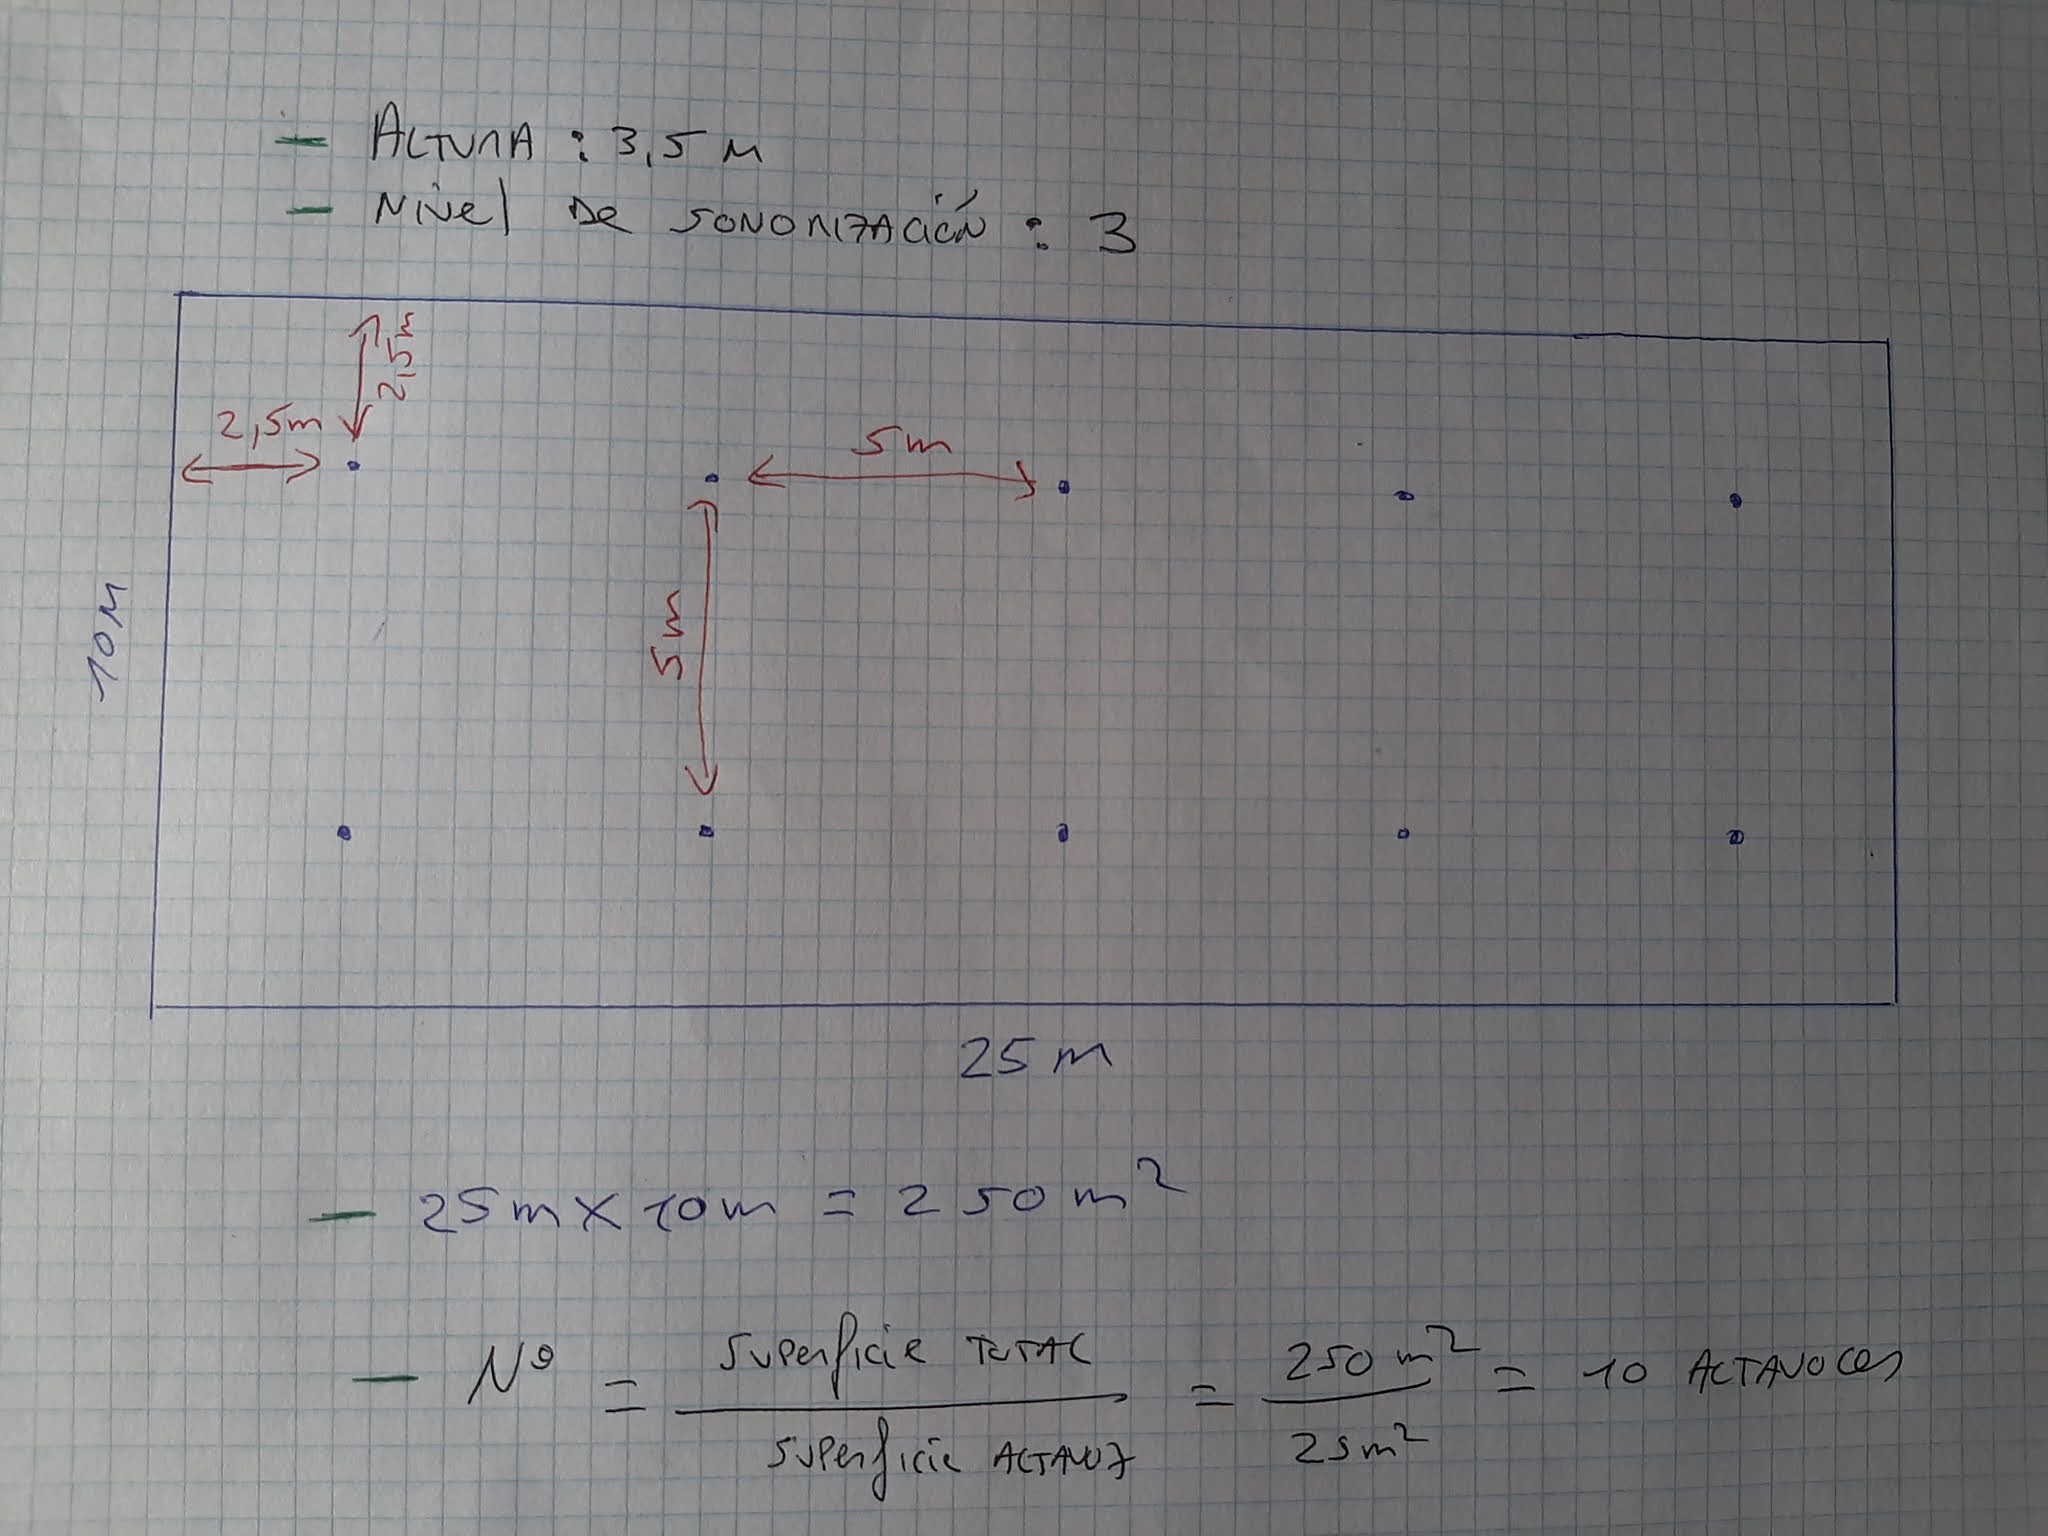 - ALTURA : 3,5 M
- Nivel De SONORIZACIÓN : 3
2,5m
2,5m
5m
5m
10M
25 m
- 25m x 10m = 250 m²
- Nº = Superficie TOTAL / Superficie ALTAVOZ = 250 m² / 25m² = 10 ALTAVOCES